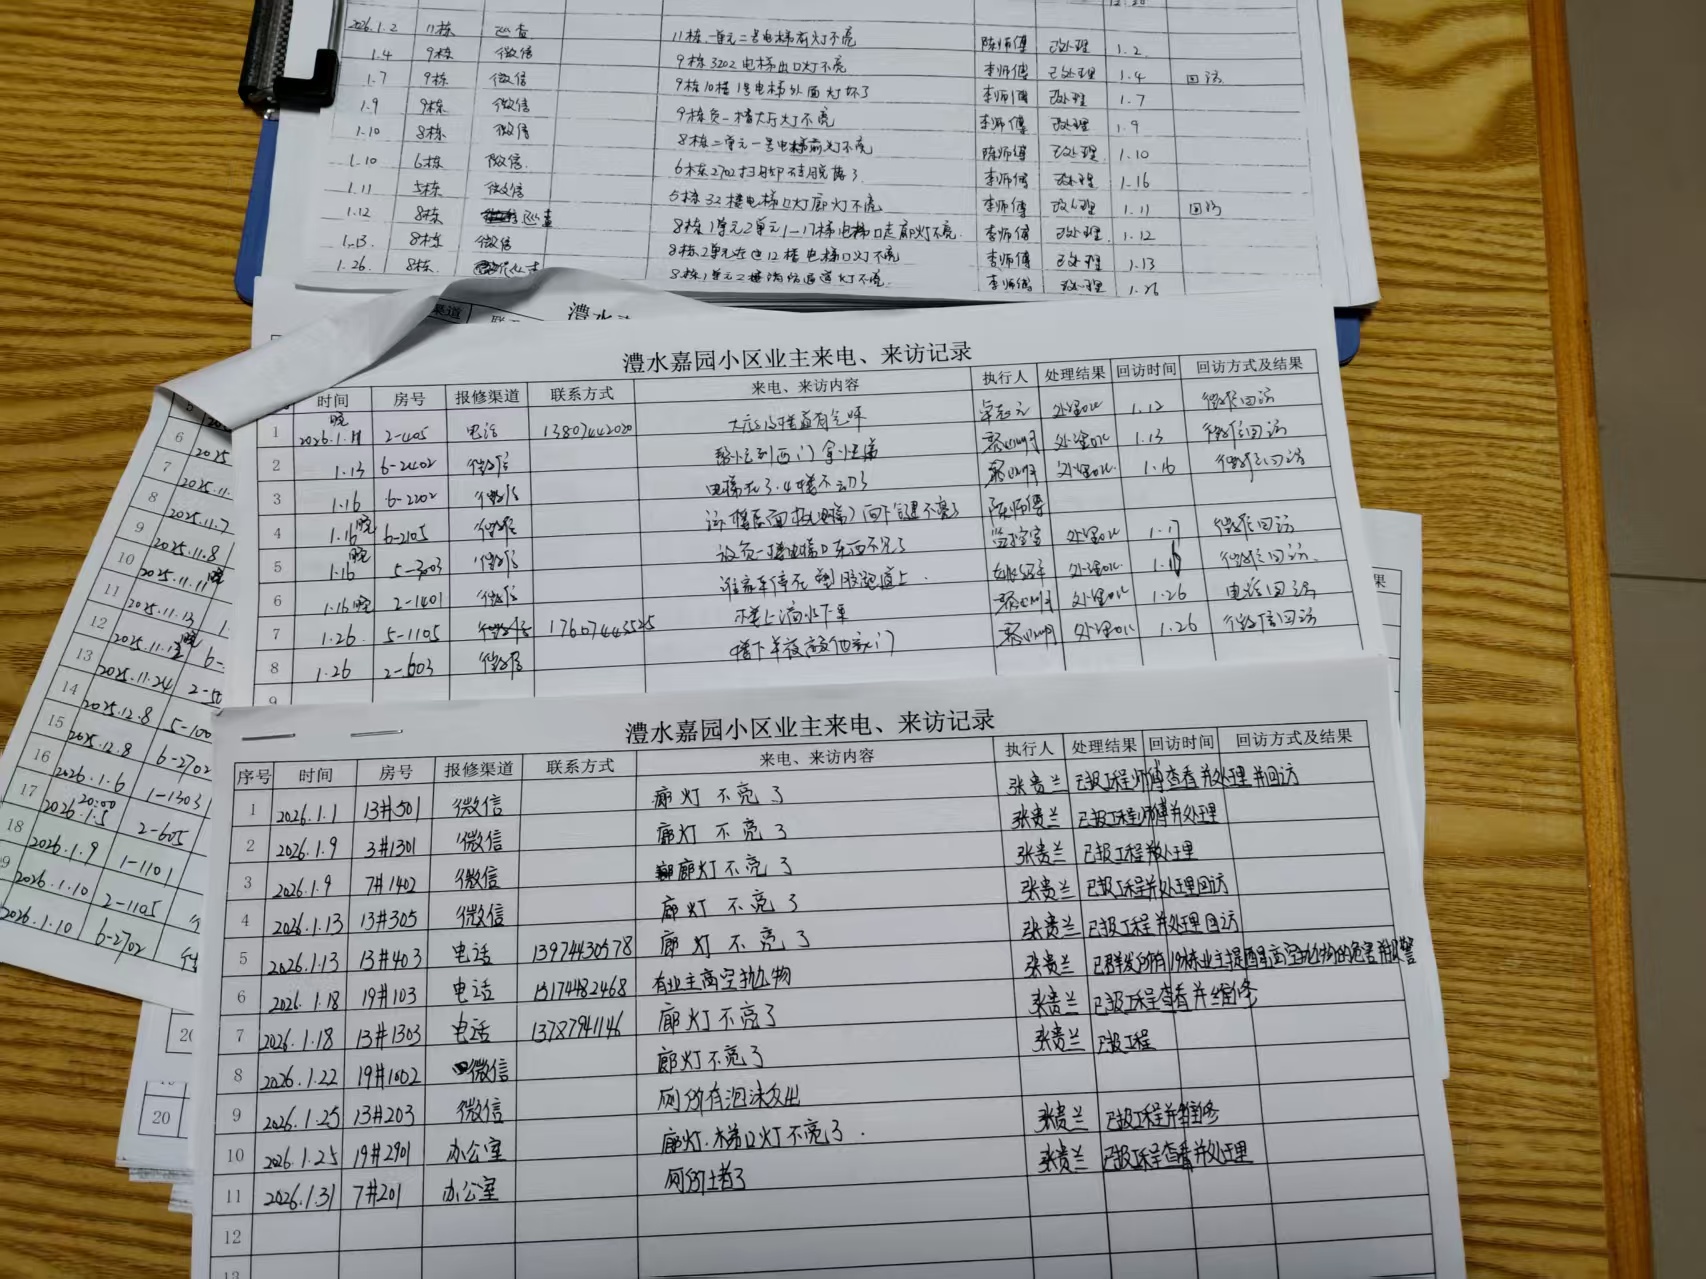 2026.1.2 11栋 巡查 11栋一单元二号电梯前灯不亮 陈师傅 已处理 1.2
1.4 9栋 微信 9栋3202电梯出口灯不亮 李师傅 已处理 1.4 回访
1.7 9栋 微信 9栋10楼1号电梯外面灯坏了 李师傅 已处理 1.7
1.9 9栋 微信 9栋负一楼大厅灯不亮 李师傅 已处理 1.9
1.10 8栋 微信 8栋二单元一号电梯前灯不亮 陈师傅 已处理 1.10
1.10 6栋 微信 6栋2702 李师傅 已处理 1.16
1.11 5栋 微信 5栋32楼电梯口灯廊灯不亮 李师傅 已处理 1.11 回访
1.12 8栋 巡查 8栋1单元2单元1-17梯电梯口走廊灯不亮 李师傅 已处理 1.12
1.13 8栋 微信 8栋2单元12楼电梯口灯不亮 李师傅 已处理 1.13
1.26 8栋 巡查 8栋1单元二楼消防通道灯不亮 李师傅 已处理 1.26
渠道 联 澧水
澧水嘉园小区业主来电、来访记录
时间 房号 报修渠道 联系方式 来电、来访内容 执行人 处理结果 回访时间 回访方式及结果
1 2026.1.11晚 2-405 电话 13807442020 处理OK 1.12 微信回访
2 1.13 6-2402 微信 帮忙到西门拿快递 处理OK 1.13 微信回访
3 1.16 6-2202 微信 电梯在3.4楼不动了 处理OK 1.16 微信回访
4 1.16晚 6-2105 微信 陈师傅
5 1.16晚 5-3003 微信 放负一楼电梯口东西不见了 监控室 处理OK 1.17 微信回访
6 1.16晚 2-1401 微信 谁家车停在塑胶跑道上 处理OK 微信回访
7 1.26 5-1105 微信 17607443525 楼上滴水下来 处理OK 1.26 电话回访
8 1.26 2-603 微信 处理OK 1.26 微信回访
9
澧水嘉园小区业主来电、来访记录
序号 时间 房号 报修渠道 联系方式 来电、来访内容 执行人 处理结果 回访时间 回访方式及结果
1 2026.1.1 13#501 微信 廊灯不亮了 张贵兰 已报工程师傅查看并处理并回访
2 2026.1.9 3#1301 微信 廊灯不亮了 张贵兰 已报工程师傅并处理
3 2026.1.9 7#1402 微信 廊灯不亮了 张贵兰 已报工程并处理
4 2026.1.13 13#305 微信 廊灯不亮了 张贵兰 已报工程并处理回访
5 2026.1.13 13#403 电话 13974430578 廊灯不亮了 张贵兰 已报工程并处理回访
6 2026.1.18 19#103 电话 15174482468 有业主高空抛物 张贵兰 已群发所有19栋业主提醒高空抛物的危害并报警
7 2026.1.18 13#1303 电话 13787941146 廊灯不亮了 张贵兰 已报工程查看并维修
8 2026.1.22 19#1002 微信 廊灯不亮了 张贵兰 已报工程
9 2026.1.25 13#203 微信 厕所有泡沫反出
10 2026.1.25 19#2901 办公室 廊灯.梯口灯不亮了. 张贵兰 已报工程并维修
11 2026.1.31 7#201 办公室 厕所堵了 张贵兰 已报工程查看并处理
12
13
5
6 2025
7 2025.11.
8 2025.11.7
9 2025.11.8
10 2025.11.11晚
11 2025.11.13 1.
12 6-
13 2025.11.24 2-50
14 2025.12.8 5-100
15 2025.12.8 6-2702
16 2026.1.6 1-1303
17 20:00 2026.1.5 2-605
18 2026.1.9 1-1101
2026.1.10 2-1105
2026.1.10 6-2702
20
20
果